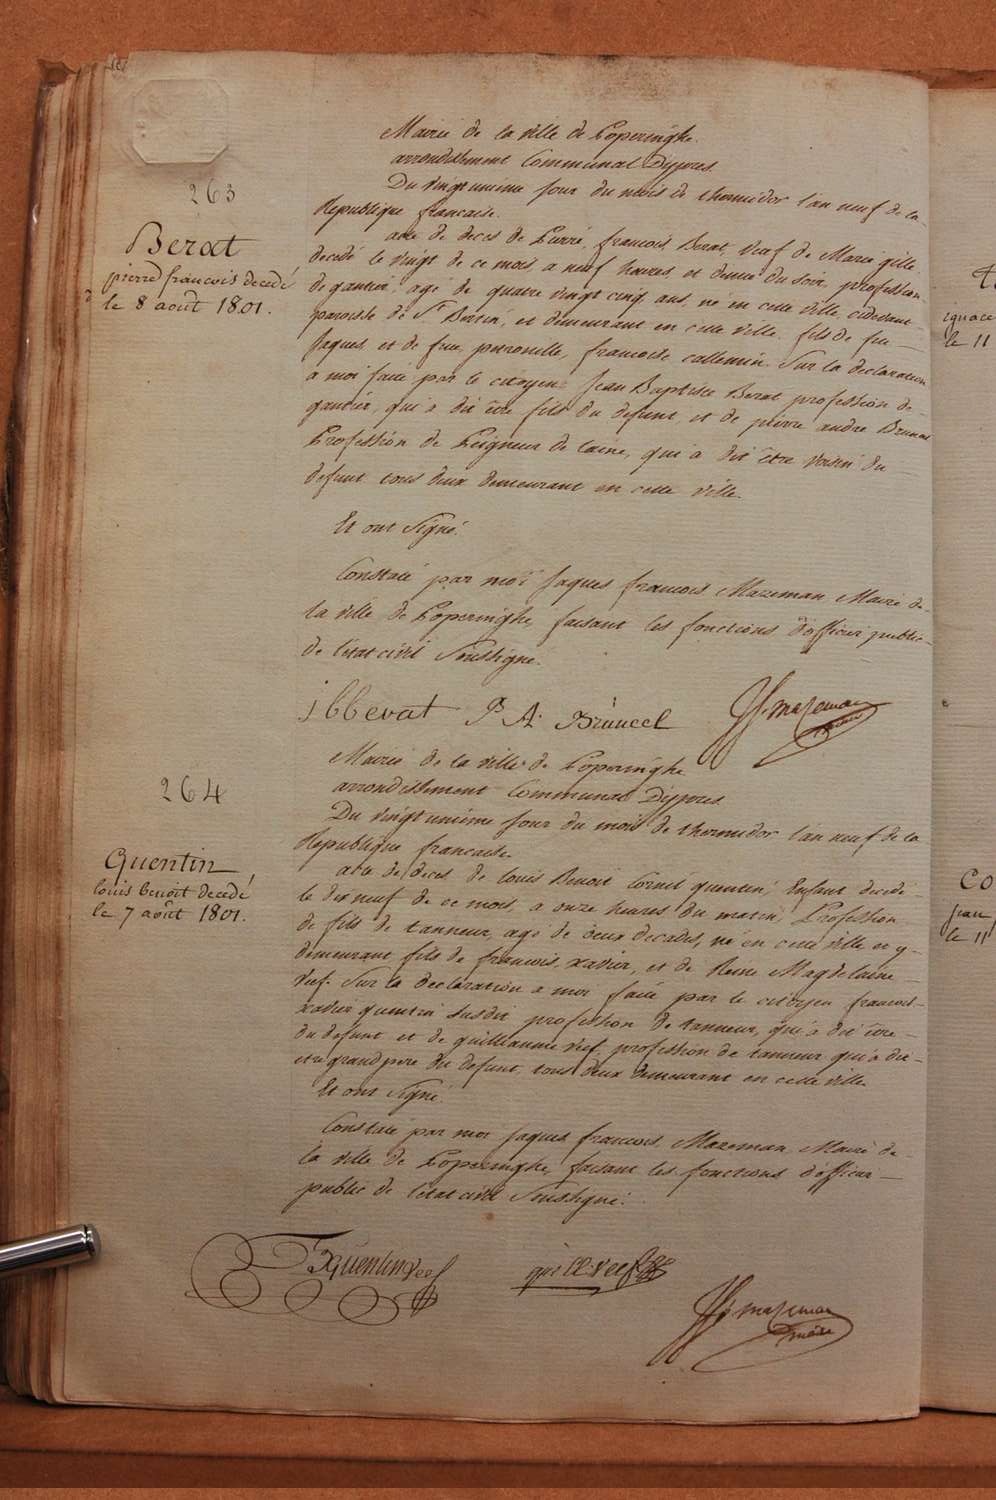 263
Berat
pierre françois decedé
le 8 août 1801.
Mairie de la ville de Poperinghe.
arrondissement Communal Dypres
Du vingt unieme jour du mois de thermidor l'an neuf de la
Republique francaise.
acte de deces de Pierre, francois Berat, veuf de Marie gille,
decedé le vingt de ce mois, a neuf heures, et demie du soir, profession
de gantier, age de quatre vingt cinq ans, né en cette ville, cidevant
paroisse de St Bertin, et demeurant en cette ville, fils de feu
Jaques et de feue petronelle, francoise callemin. Sur la declaration
a moi faite par le citoyen Jean Baptiste Berat profession de
gantier, qui a dit être fils du defunt, et de pierre andre Bruneel
Profession de Peigneur de laine, qui a dit être voisin du
defunt tous deux demeurant en cette ville.
Et ont signé.
Constaté par moi Jaques francois Mazeman Maire de
la ville de Poperinghe, faisant les fonctions d'officier public
de l'état civil soussigné.
jbberat P A Brüneel JF mazeman
maire
264
Quentin
louis benoit decedé
le 7 août 1801.
Mairie de la ville de Poperinghe
arrondissement Communal Dypres
Du vingt unieme jour du mois de thermidor l'an neuf de la
Republique francaise.
acte de deces de louis Benoit Cornil quentin, Enfant decedé
le dix neuf de ce mois, a onze heures du matin, Profession
de fils de tanneur, age de deux decades, né en cette ville et y
demeurant fils de francois, xavier, et de Reine Magdelaine
veef. Sur la declaration a moi faite par le citoyen francois
xavier quentin susdit profession de tanneur, qui a dit être
du defunt et de guilleaume veef profession de tanneur qui a dit
etre grand pere du defunt, tous deux demeurant en cette ville
Et ont signé.
Constaté par moi Jaques francois, Mazeman, Maire de
la ville de Poperinghe, faisant les fonctions d'officier
public de l'état civil soussigné.
quentin veef guill veef
JF mazeman
maire
ignace
le 11
CO
jean
le 11